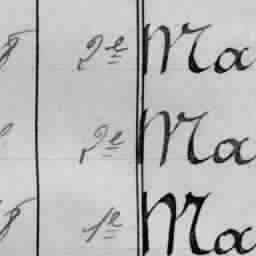 8 2e Ma
2e Ma
8 1e Ma